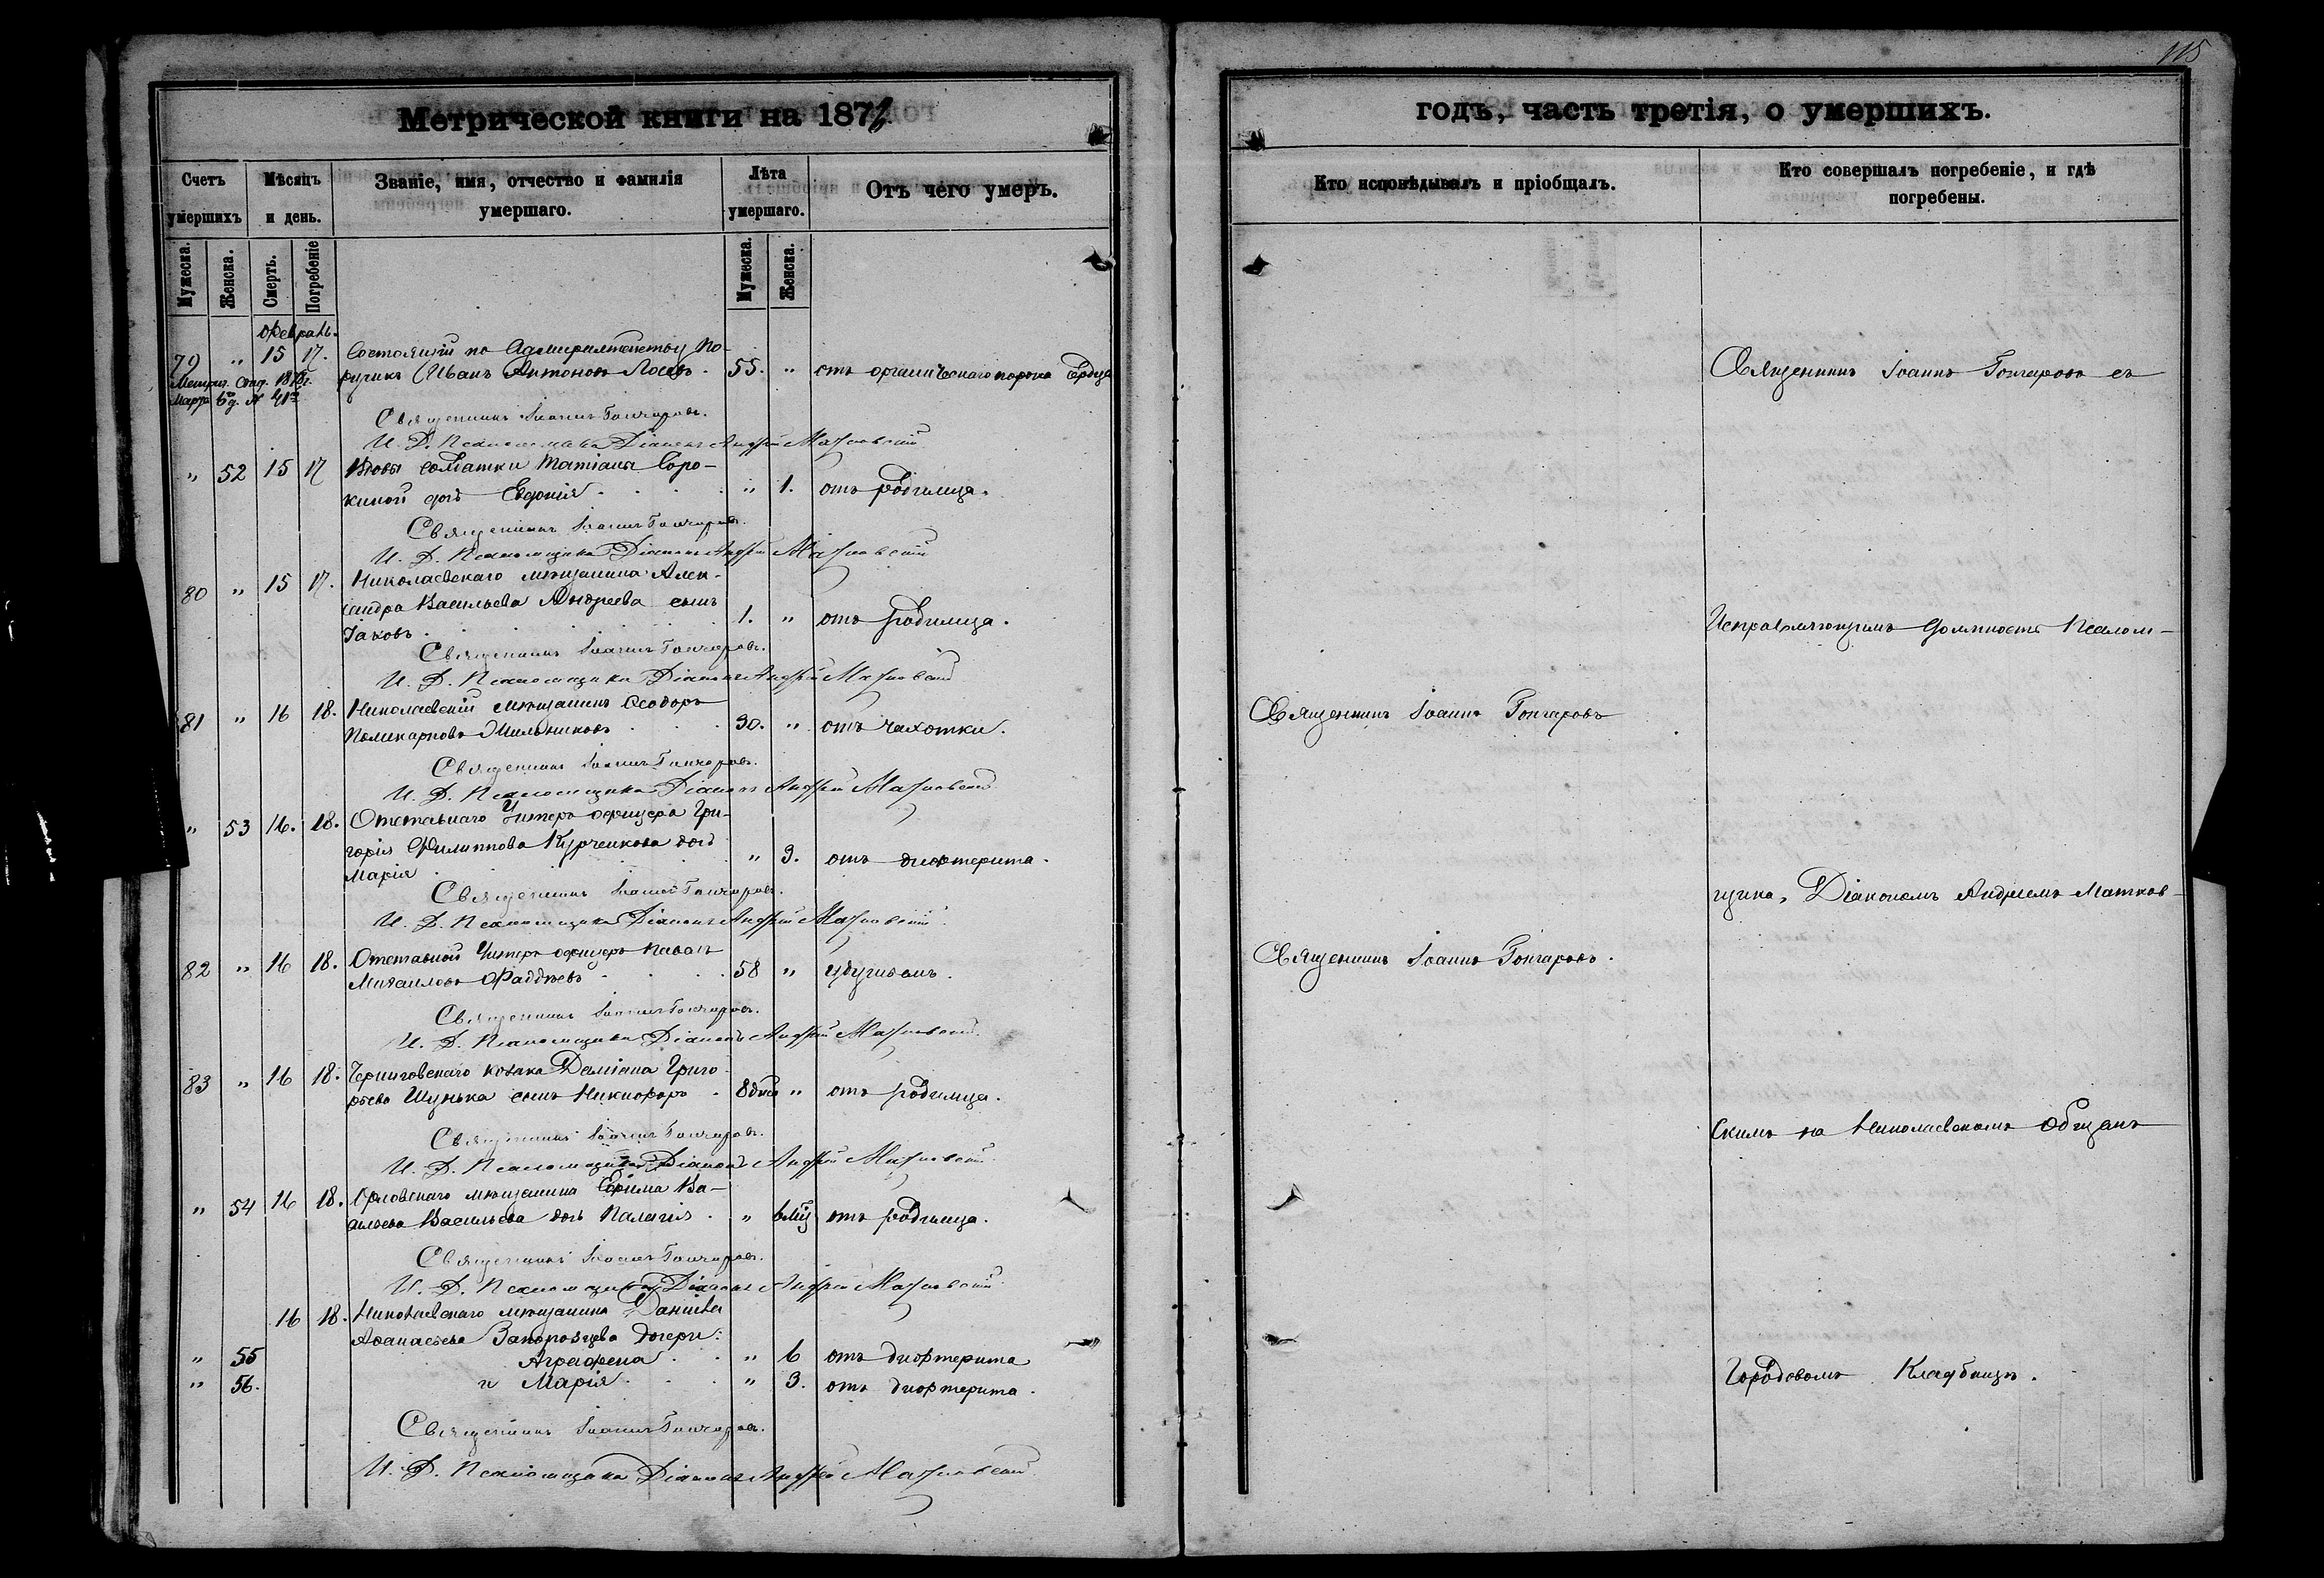 115
Метрической книги на 1876
годъ, часть третія, о умершихъ.
Счетъ умершихъ
Мѣсяцъ и день.
Званіе, имя, отчество и фамилія умершаго.
Лѣта умершаго.
Отъ чего умеръ.
Кто исповѣдывалъ и пріобщалъ.
Кто совершалъ погребеніе, и гдѣ погребены.
Мужеска. Женска. Смерть. Погребеніе Мужеска. Женска.
Февраль.
79 " 15 17. Состоящій по Адмиралтейству По-
ручикъ Иванъ Антоновъ 55. " отъ органическаго порока сердца
Священникъ Іоаннъ Гончаровъ съ
Священникъ Іоаннъ Гончаровъ.
И. Д. Псаломщика Діаконъ Андрей Матковскій
" 52 15 17 Вдовы солдатки Татіаны Соро-
киной дочь Евдокія " 1. отъ родимца.
Священникъ Іоаннъ Гончаровъ.
И. Д. Псаломщика Діаконъ Андрей Матковскій
80 " 15 17. Николаевскаго мѣщанина Алек-
сандра Васильева Андреева сынъ
Іаковъ 1. " отъ родимца.
Исправляющимъ должность Псалом-
Священникъ Іоаннъ Гончаровъ.
И. Д. Псаломщика Діаконъ Андрей Матковскій
81 " 16 18. Николаевскій мѣщанинъ Ѳеодоръ
Поликарповъ Мильниковъ 30. " отъ чахотки.
Священникъ Іоаннъ Гончаровъ
Священникъ Іоаннъ Гончаровъ.
И. Д. Псаломщика Діаконъ Андрей Матковскій
" 53 16. 18. Отставнаго Унтеръ офицера Гри-
горія Филиппова Курченкова дочь
Марія " 3. отъ дифтерита.
Священникъ Іоаннъ Гончаровъ.
щика, Діакономъ Андреемъ Матков-
И. Д. Псаломщика Діаконъ Андрей Матковскій
82 " 16 18. Отставной Унтеръ офицеръ Павелъ
Михаиловъ Фаддѣевъ 58 "
Священникъ Іоаннъ Гончаровъ.
Священникъ Іоаннъ Гончаровъ.
И. Д. Псаломщика Діаконъ Андрей Матковскій
83 " 16 18. Черниговскаго козака Даміана Григо-
рьева Шунька сынъ Никифоръ 8 дней " отъ родимца.
скимъ на Николаевскомъ Общемъ
Священникъ Іоаннъ Гончаровъ.
И. Д. Псаломщика Діаконъ Андрей Матковскій
" 54 16 18. Орловскаго мѣщанина Ефима Ва-
сильева Васильева дочь Пелагія " 6 мѣс отъ родимца.
Священникъ Іоаннъ Гончаровъ.
И. Д. Псаломщика Діаконъ Андрей Матковскій
16 18. Николаевскаго мѣщанина Даніила
Аѳанасьева Запорозцева дочери:
" 55 Аграфена " 6 отъ дифтерита
" 56. и Марія " 3. отъ дифтерита.
Городовомъ Кладбищѣ.
Священникъ Іоаннъ Гончаровъ.
И. Д. Псаломщика Діаконъ Андрей Матковскій